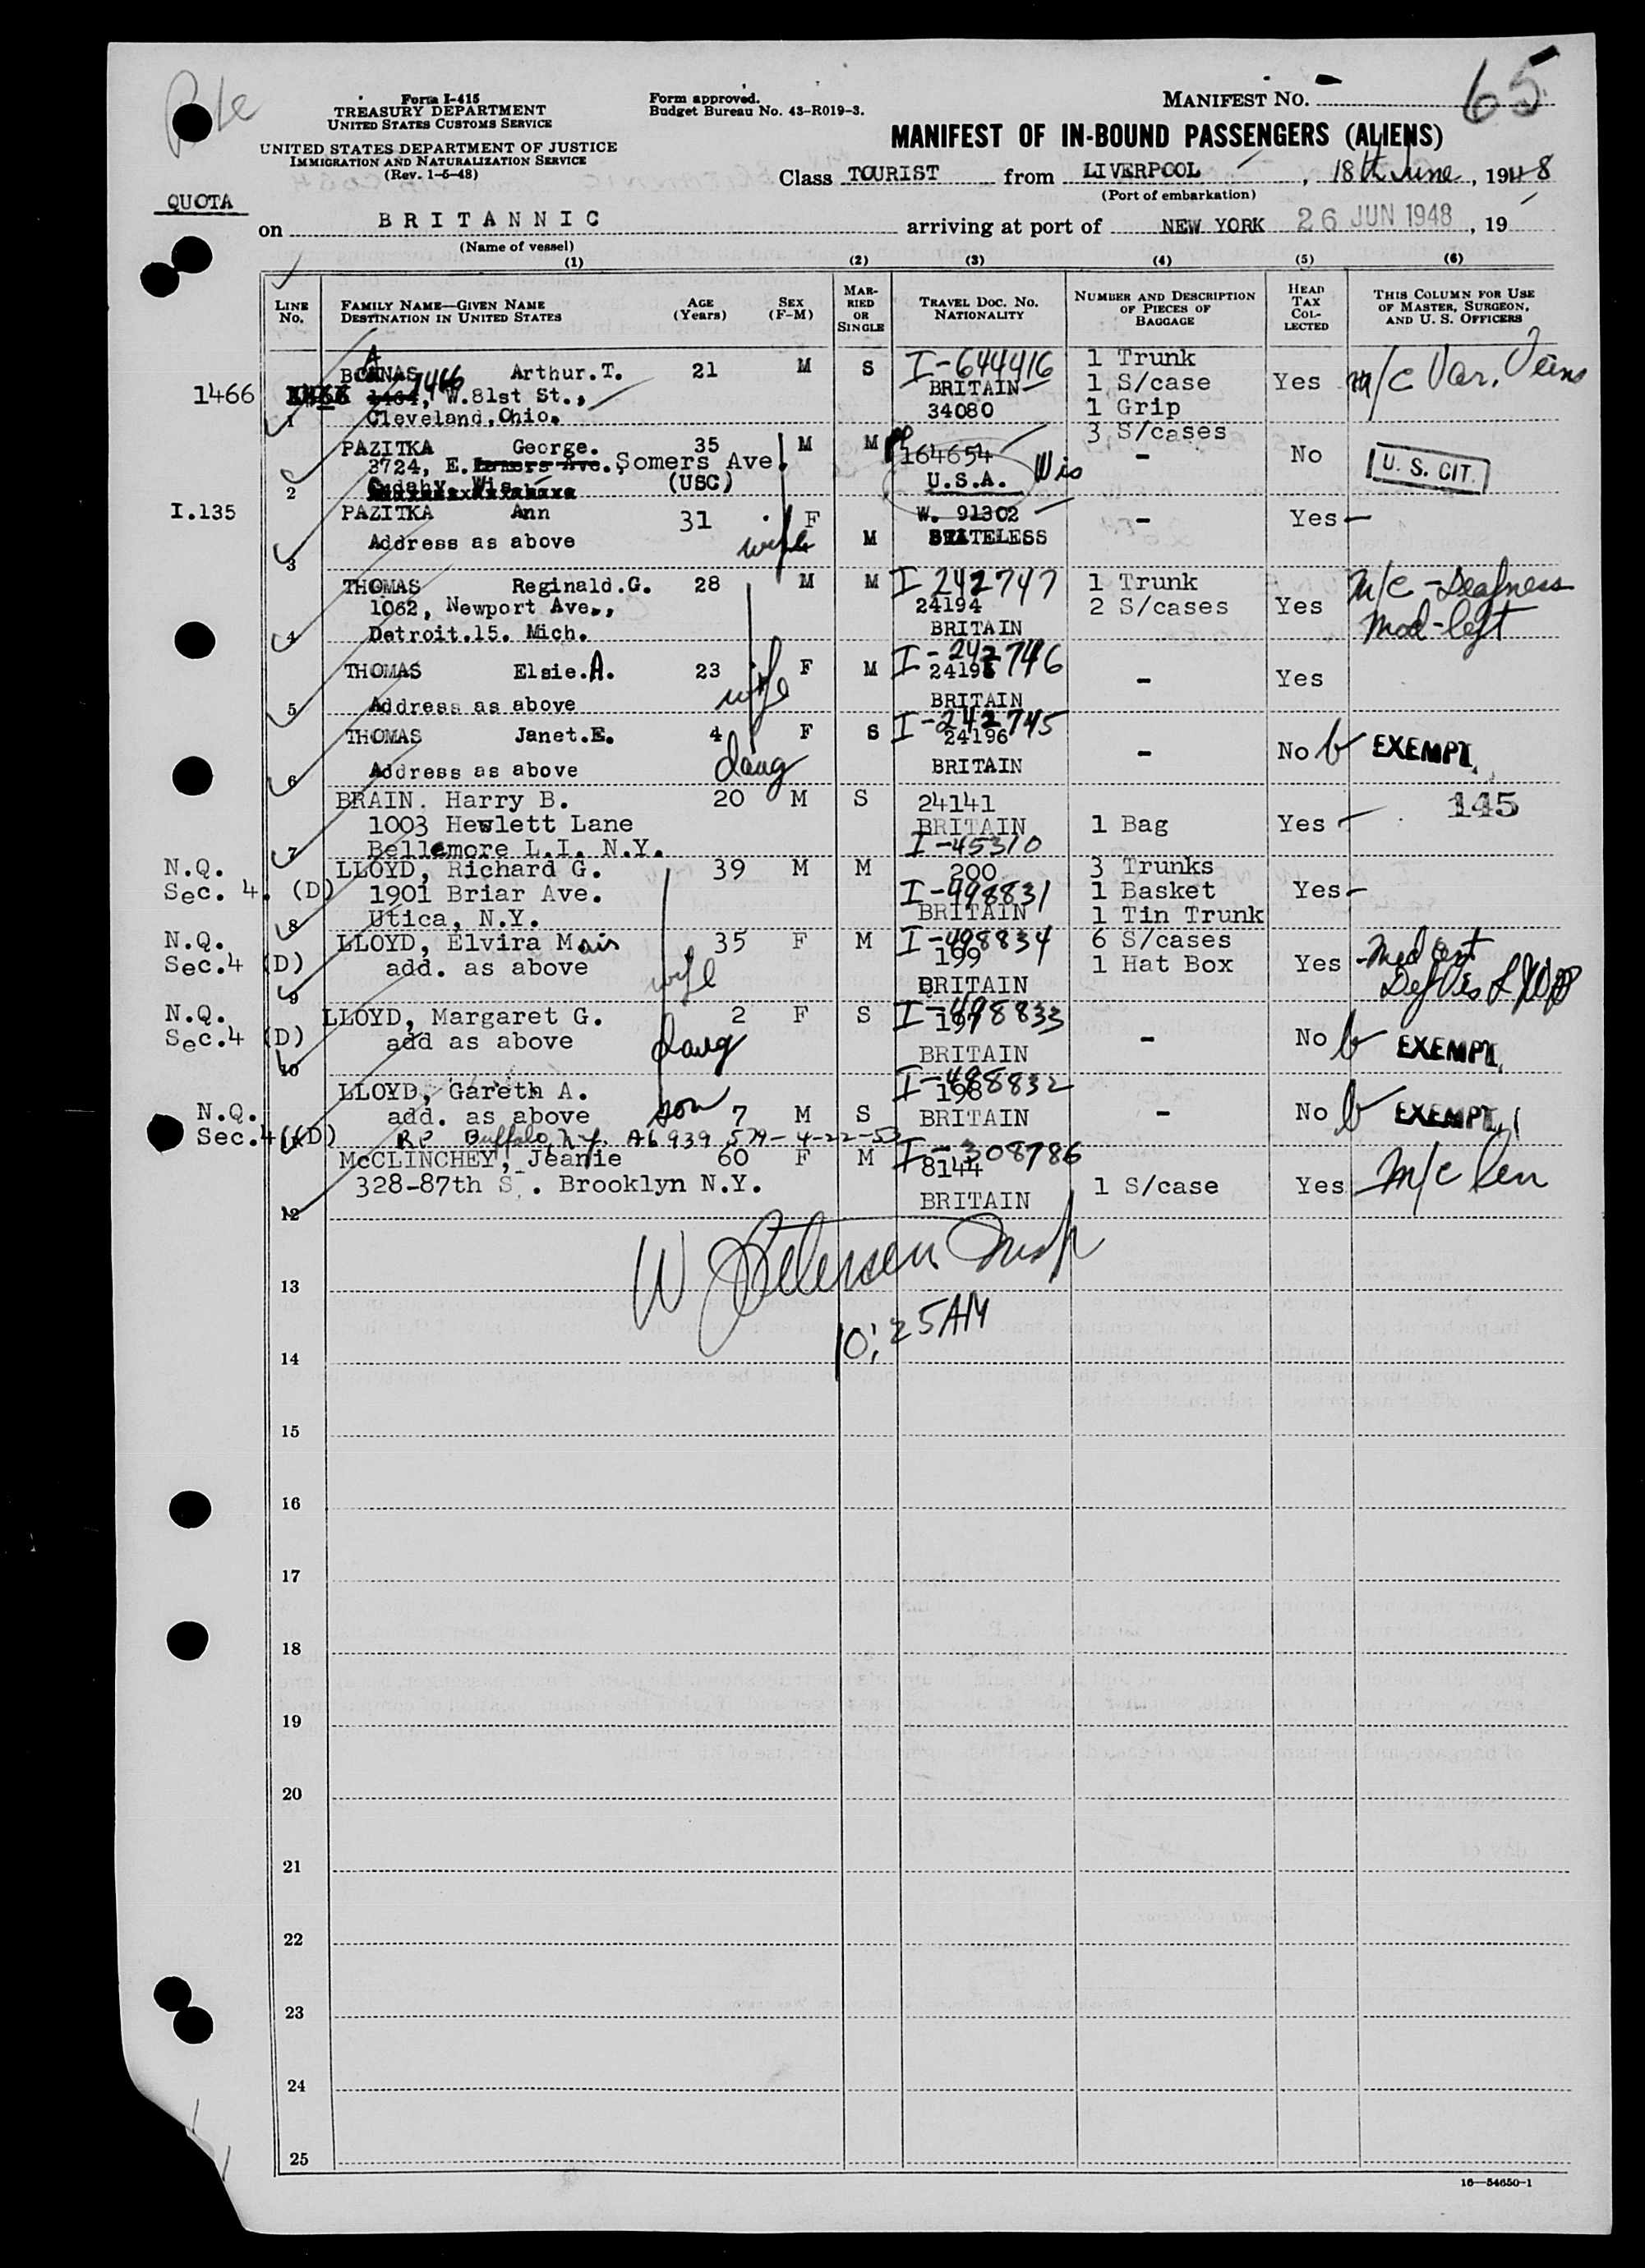 65
Form I-415
TREASURY DEPARTMENT
UNITED STATES CUSTOMS SERVICE
UNITED STATES DEPARTMENT OF JUSTICE
IMMIGRATION AND NATURALIZATION SERVICE
(Rev. 1-5-48)
Form approved.
Budget Bureau No. 43-R019-3.
MANIFEST NO.
MANIFEST OF IN-BOUND PASSENGERS (ALIENS)
Class TOURIST from LIVERPOOL, 18th June, 1948
(Port of embarkation)
QUOTA
on BRITANNIC arriving at port of NEW YORK 26 JUN 1948, 19
(Name of vessel)
(1) (2) (3) (4) (5) (6)
LINE No. FAMILY NAME—GIVEN NAME DESTINATION IN UNITED STATES AGE (Years) SEX (F-M) MARRIED OR SINGLE TRAVEL DOC. NO. NATIONALITY NUMBER AND DESCRIPTION OF PIECES OF BAGGAGE HEAD TAX COLLECTED THIS COLUMN FOR USE OF MASTER, SURGEON, AND U. S. OFFICERS
Arthur.T. 21 M S I-644416 1 Trunk
1466 1466, W.81st St., BRITAIN 1 S/case Yes m/c Var. Veins
1 Cleveland,Ohio. 34080 1 Grip
3 S/cases
PAZITKA George. 35 M M 164654 - No U. S. CIT.
3724, E. Somers Ave. Wis
2 Cudahy, Wis (USC) U.S.A.
I.135 PAZITKA Ann 31 F W. 91302 - Yes -
3 Address as above wife M STATELESS
THOMAS Reginald.G. 28 M M I 242747 1 Trunk m/c - Deafness
1062, Newport Ave., 24194 2 S/cases Yes Mod-left
4 Detroit.15. Mich. BRITAIN
THOMAS Elsie.A. 23 F M I-242746 - Yes
24195
5 Address as above wife BRITAIN
THOMAS Janet.E. 4 F S I-242745 - No EXEMPT
24196
6 Address as above daug BRITAIN
BRAIN. Harry B. 20 M S 24141 145
1003 Hewlett Lane BRITAIN 1 Bag Yes -
7 Bellemore L.I. N.Y. I-45310
N.Q. LLOYD, Richard G. 39 M M 200 3 Trunks
Sec. 4. (D) 1901 Briar Ave. I-498831 1 Basket Yes -
8 Utica, N.Y. BRITAIN 1 Tin Trunk
N.Q. LLOYD, Elvira Mair 35 F M I-498834 6 S/cases
Sec.4 (D) add. as above wife 199 1 Hat Box Yes - Med cert
9 BRITAIN Def Vis
N.Q. LLOYD, Margaret G. 2 F S I-498833
197
Sec.4 (D) add as above daug - No EXEMPT
10 BRITAIN
LLOYD, Gareth A. I-498832
198
N.Q. add. as above son 7 M S BRITAIN - No EXEMPT
Sec.4 (D) Buffalo, N.Y. A6 939 579 - 4-22-53
McCLINCHEY, Jeanie 60 F M I-308786
8144 m/c Sen
328-87th S . Brooklyn N.Y. 1 S/case Yes
12 BRITAIN
W Petersen Insp
13
10:25AM
14
15
16
17
18
19
20
21
22
23
24
25
16—54650-1